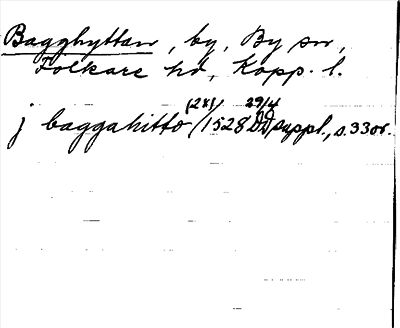 Bagghyttan, by, By sn,
Folkare hd, Kopp. l.
(2x1) 29/4
j baggahitto /1528 DD suppl., s. 330r.